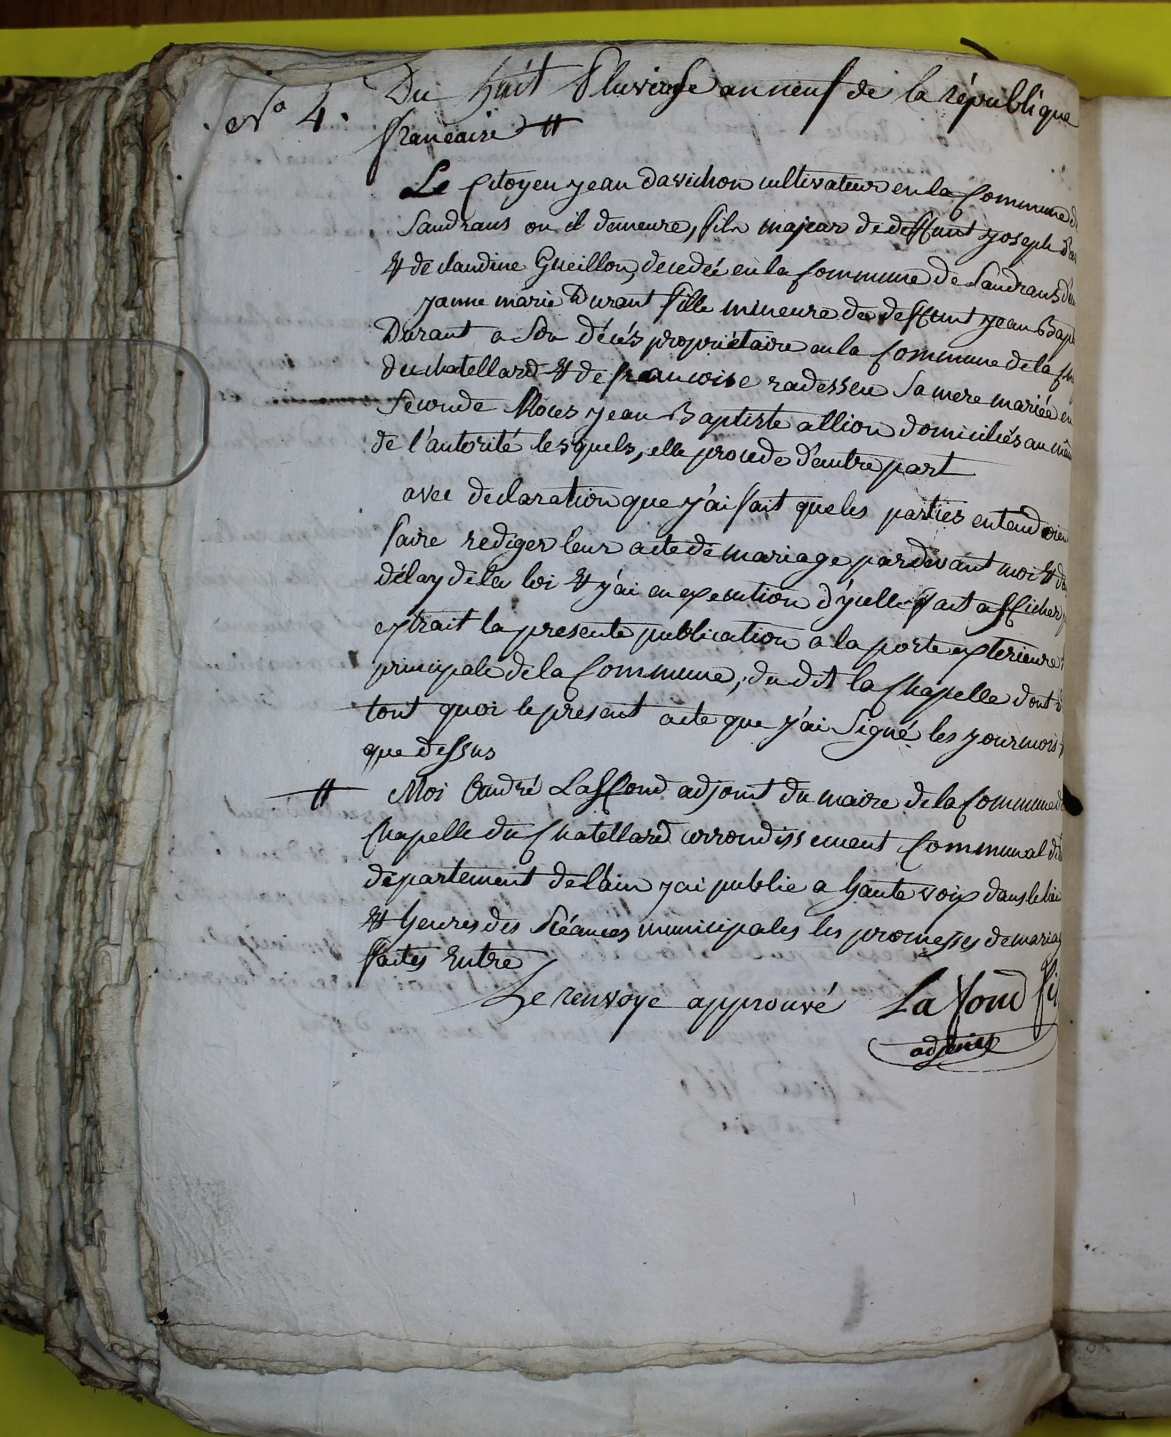 No 4. Du huit Pluviose an neuf de la république
francaise #
Le Citoyen jean davichon cultivateur en la Commune de
Sandrans ou il demeure, fils majeur de deffunt joseph
& de claudine Gueillon, decedée en la Commune de Sandrans
janne marie Durant fille mineure de deffunt jean Bapt
Durant a Son décés propriétaire en la Commune de la
du chatellard & de francoise radesseu Sa mere mariée en
Seconde Noces jean Baptiste allion domiciliés au
de l'autorité lesquels, elle procede d'autre part
avec declaration que j'ai fait que les parties entendoien
faire rediger leur acte de mariage pardevant moi &
délay de la loi & j'ai en execution d'ycelle fait afficher
extrait la presente publication a la porte exterieure
principale de la Commune, du dit la Chapelle dont
tout quoi le present acte que j'ai Signé les jour mois
que dessus
# Moi andré Laffond adjoint du maire de la Commune
Chapelle du Chatellard arrondissement Communal
département de l'ain j'ai publié a haute voix dans le
& heures des Séances municipales les promesses de mariag
faites Entre
Le renvoye approuvé La fond fi
adjoint